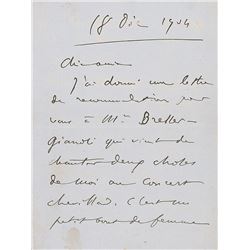 18 Déc 1904
cher ami
J'ai donné une lettre
de recommandation pour
vous à Me Bressler-
Gianoli qui vient de
chanter deux choses
de moi au Concert
Chevillard. C'est un
petit bout de femme